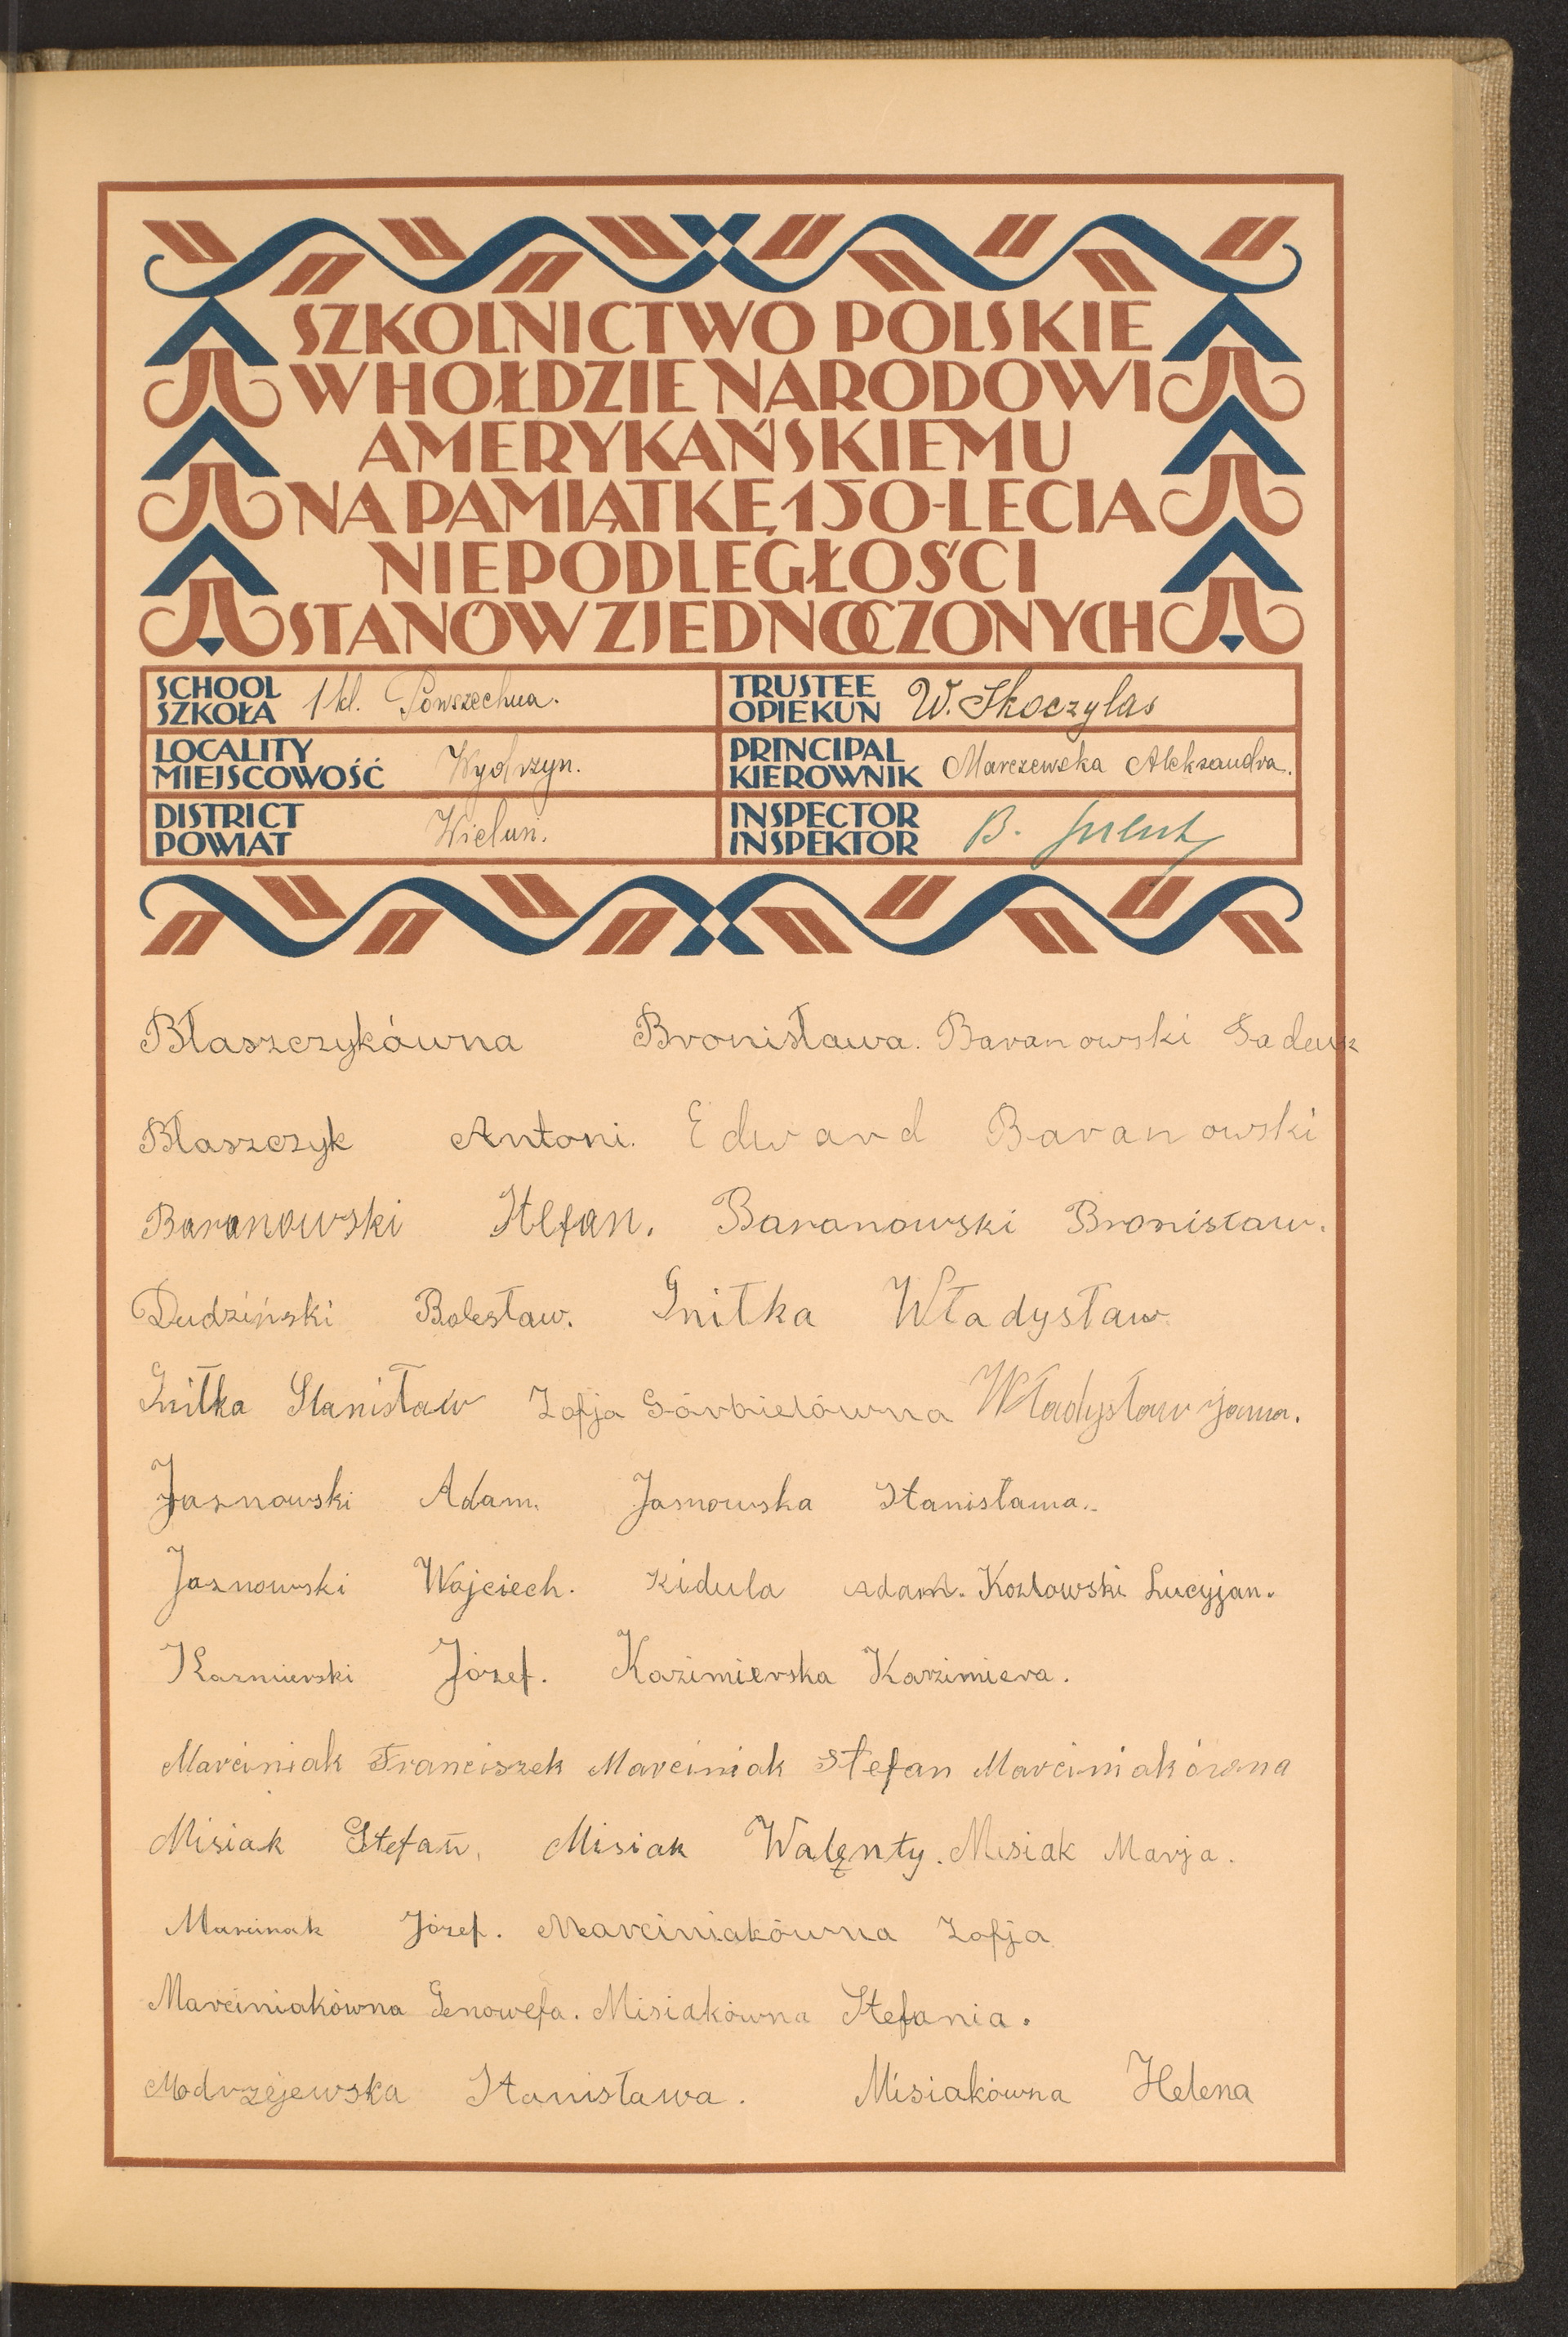 SZKOLNICTWO POLSKIE
W HOŁDZIE NARODOWI
AMERYKAŃSKIEMU
NA PAMIĄTKĘ 150-LECIA
NIEPODLEGŁOŚCI
STANÓW ZJEDNOCZONYCH
SCHOOL
SZKOŁA 1 kl. Powszechna.
TRUSTEE
OPIEKUN W. Skoczylas
LOCALITY
MIEJSCOWOŚĆ Wydrzyn.
PRINCIPAL
KIEROWNIK Marczewska Aleksandra.
DISTRICT
POWIAT Wieluń.
INSPECTOR
INSPEKTOR B.
Błaszczykówna Bronisława. Baranowski
Błaszczyk Antoni. Edward Baranowski
Baranowski Stefan. Baranowski Bronisław.
Dudziński Bolesław. Gnitka Władysław
Gnitka Stanisław Zofja Górbielówna Władysław Jama.
Jasnowski Adam. Jasnowska Stanisława.
Jasnowski Wojciech. Kidula Adam. Kozłowski Lucyjan.
Kazmierski Józef. Kazimierska Kazimiera.
Marciniak Franciszek Marciniak Stefan Marciniakówna
Misiak Stefan. Misiak Walęnty. Misiak Marja.
Marcinak Józef. Marciniakówna Zofja
Marciniakówna Genowefa. Misiakówna Stefania.
Modrzejewska Stanisława. Misiakówna Helena